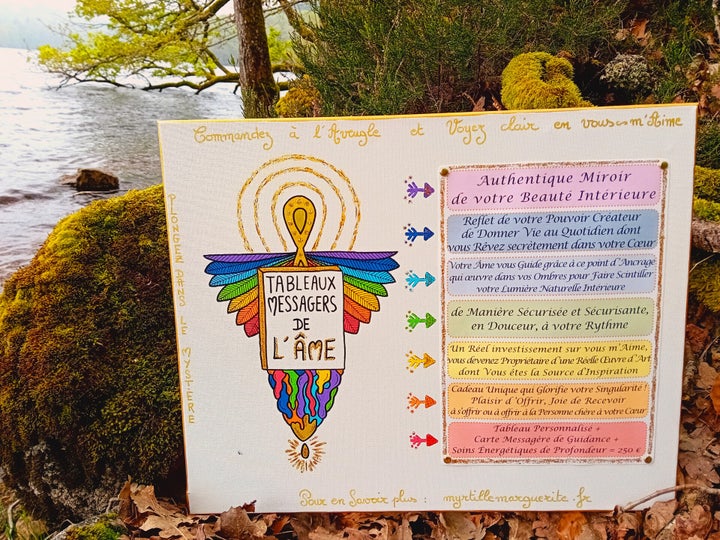 Commandez à l'Aveugle et Voyez clair en vous m'Aime
PLONGEZ DANS LE MYSTÈRE
TABLEAUX
MESSAGERS
DE
L'ÂME
Authentique Miroir
de votre Beauté Intérieure
Reflet de votre Pouvoir Créateur
de Donner Vie au Quotidien dont
vous Rêvez secrètement dans votre Cœur
Votre Âme vous Guide grâce à ce point d'Ancrage
qui œuvre dans vos Ombres pour Faire Scintiller
votre Lumière Naturelle Intérieure
de Manière Sécurisée et Sécurisante,
en Douceur, à votre Rythme
Un Réel investissement sur vous m'Aime,
vous devenez Propriétaire d'une Réelle Œuvre d'Art
dont Vous êtes la Source d'Inspiration
Cadeau Unique qui Glorifie votre Singularité !
Plaisir d'Offrir, Joie de Recevoir
à s'offrir ou à offrir à la Personne chère à votre Cœur
Tableau Personnalisé +
Carte Messagère de Guidance +
Soins Energétiques de Profondeur = 250 €
Pour en Savoir plus : myrtillemarguerite.fr